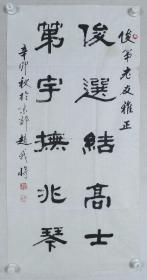 俊第老友雅正
俊選結高士
第宇撫兆琴
辛卯秋於京郊趙